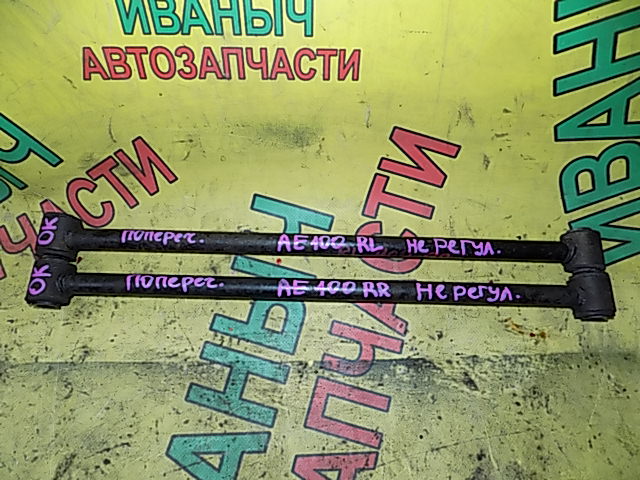 ИВАНЫЧ
АВТОЗАПЧАСТИ
ИВАНЫ
ЫЧ
ЧАСТИ
OK попереч. AE100 RL не регул.
OK попереч. AE100 RR Не регул.
АНЫЧ
АПЧАСТИ